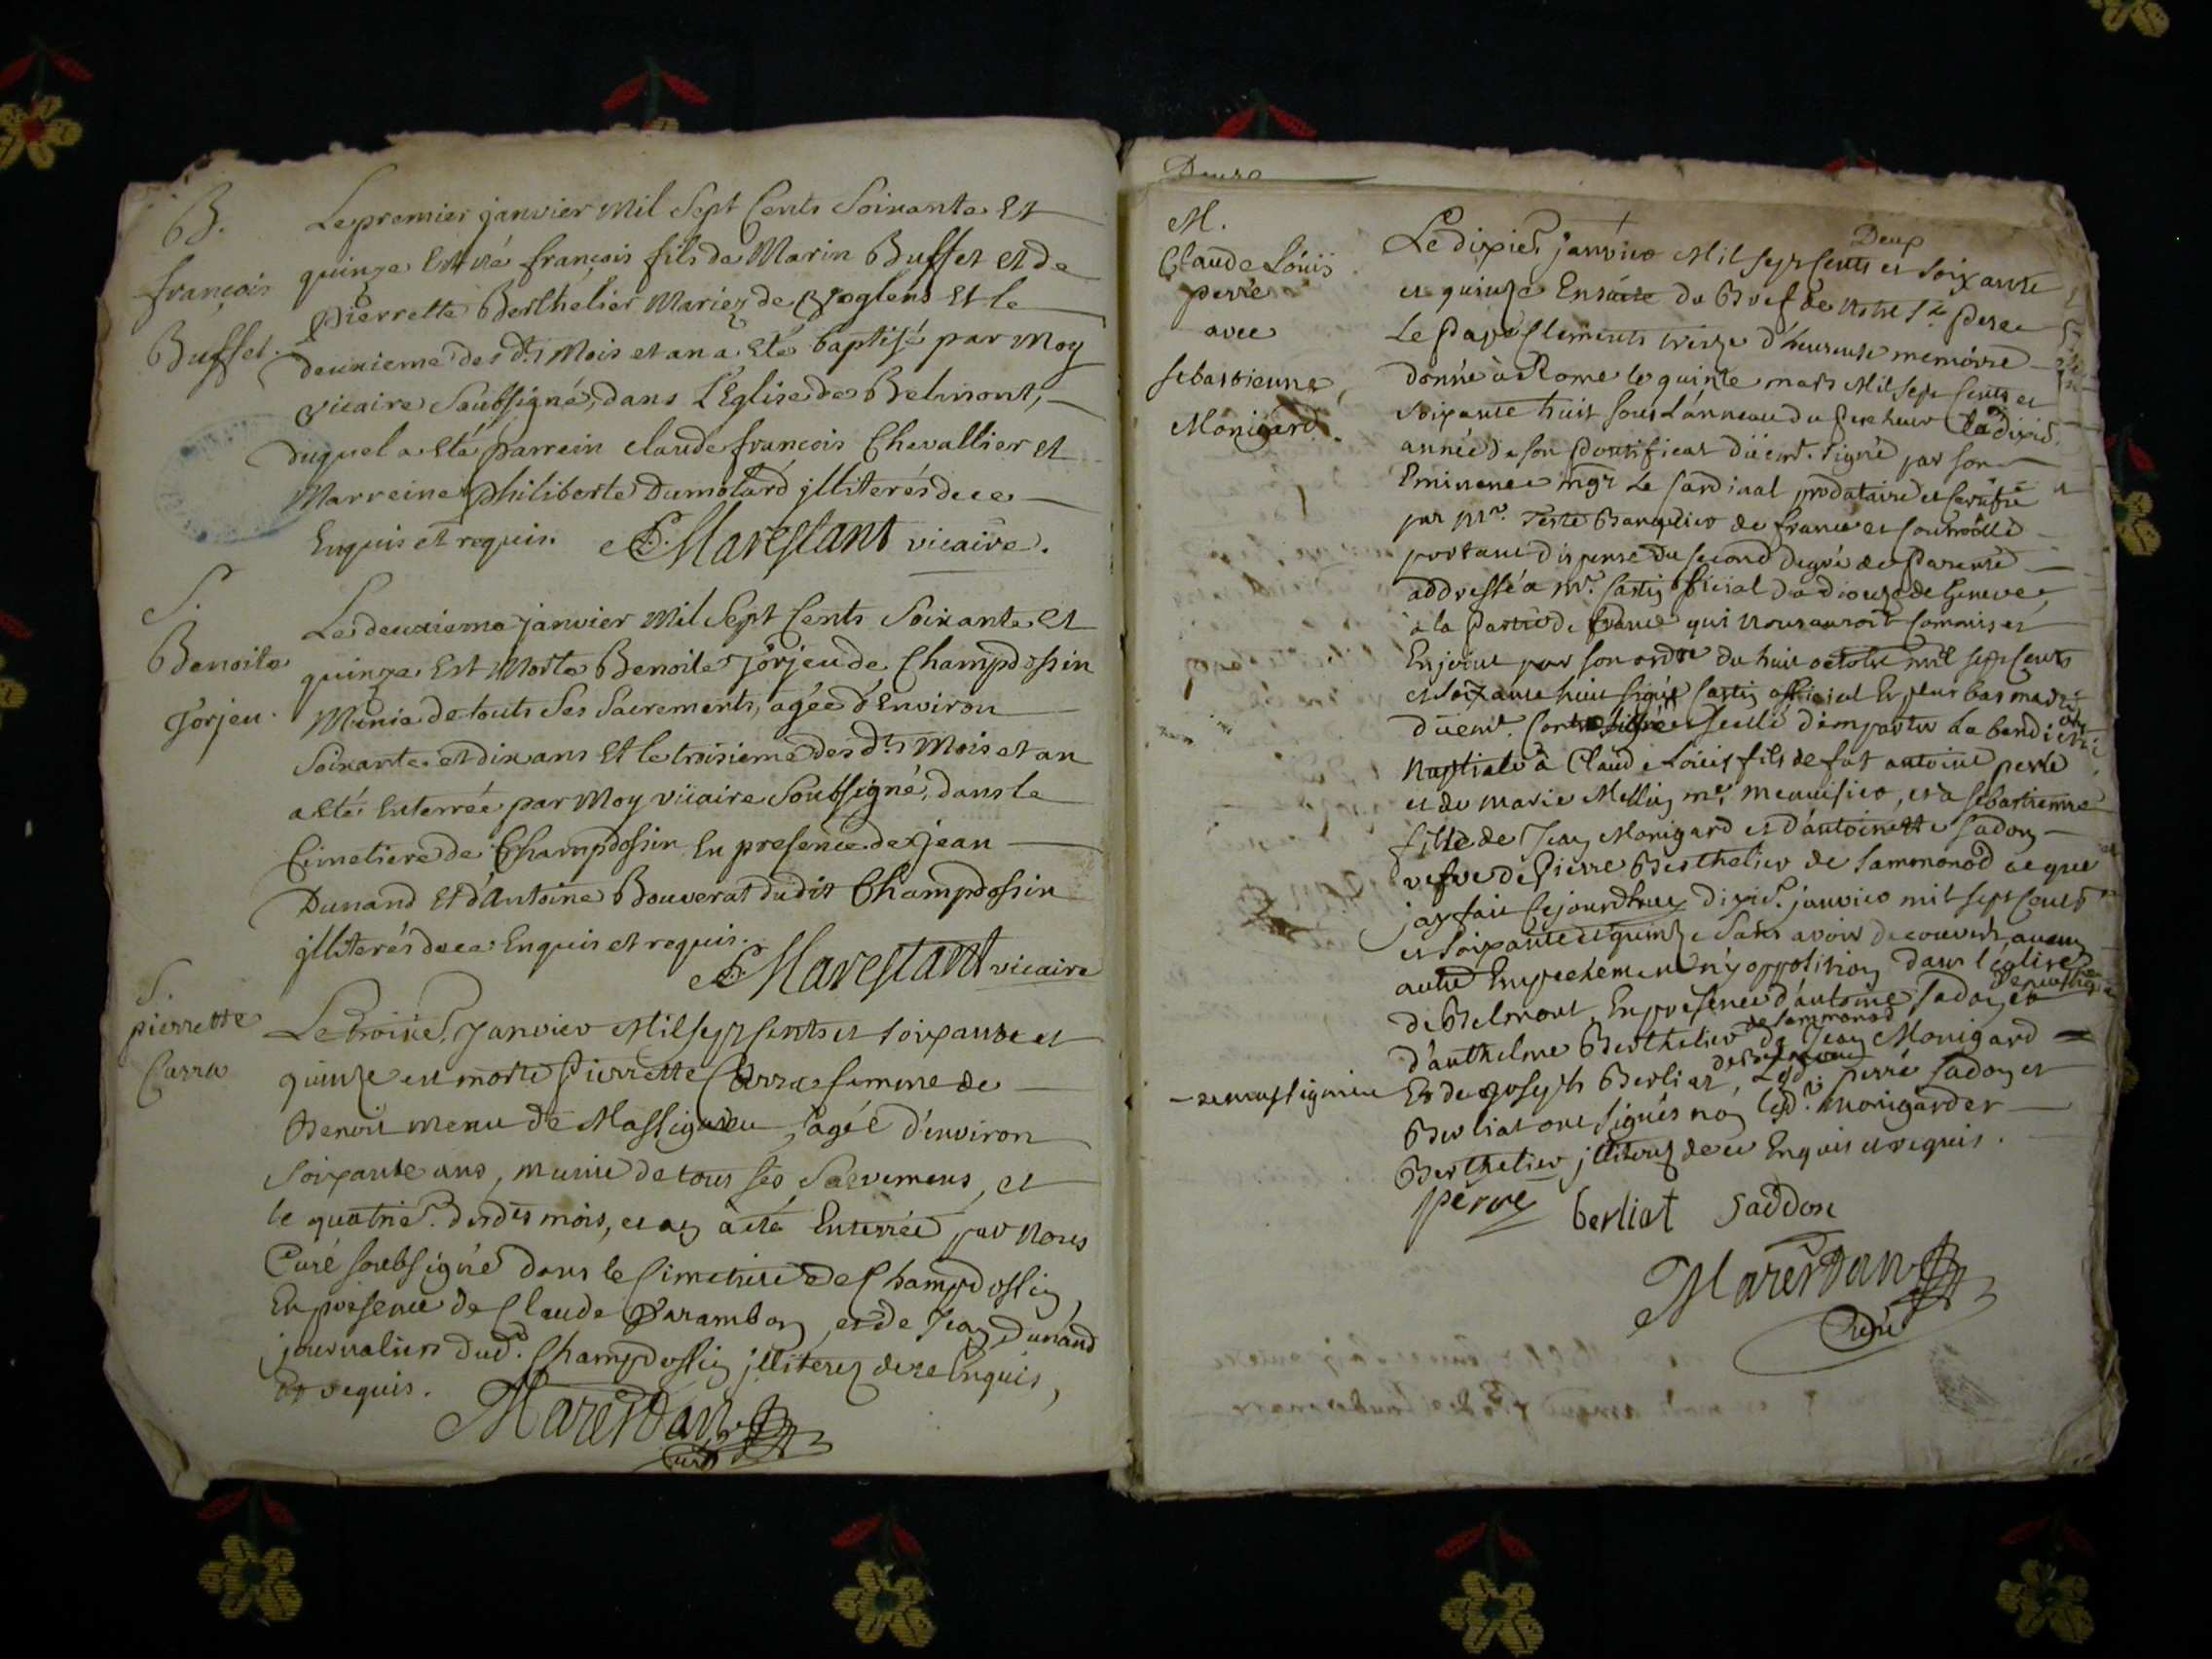 B.
françois
Buffet.
Le premier janvier Mil Sept Cents Soixante Et
quinze Est né françois fils de Marin Buffet et de
Pierrette Berthelier Mariez de Broglens Et le
deuxieme des dts Mois et an a Eté baptisé par Moy
vicaire Soubsigné, dans L'Eglise de Belmont,
duquel a Eté parrein claude françois Chevallier et
Marreine philiberte Dumolard jlliterés de ce
Enquis et requis. Marestant vicaire.
S.
Benoite
Jorjeu.
Le deuxieme janvier Mil Sept Cents Soixante Et
quinze Est Morte Benoite Jorjeu de Champdossin
Munie de touts Ses Sacrements, agée d'Environ
Soixante et dix ans Et le troisieme des dts Mois et an
a Eté Enterrée par Moy vicaire Soubsigné, dans le
Cimetiere de Champdossin En presence de jean
Dunand Et d'Antoine Bouverat dudit Champdossin
jlliterés de ce Enquis et requis.
Marestant vicaire
S.
pierrette
Carra
Le troisie. Janvier Mil sept cents et soixante et
quinze est morte Pierrette Carra femme de
Benoit menu de Massignieu, agée d'environ
soixante ans, munie de tous ses Sacremens, et
le quatrie. desdts mois, et an a eté Enterrée par Nous
Curé soubsigné dans le Cimetiere de Champdossin,
En presence de Claude Parambon, et de Jean Dunand
journaliers dud. Champdossin jlliterez de ce Enquis,
Et requis.
Marestan
Curé
Deuxe
M.
Claude Loüis
perré
avec
sebastienne
Monigard.
Deux
Le dixie. janvier Mil sept cents et soixante
et quinze Ensuite du Bref de Notre St. Pere
Le Pape Clements treize d'heureuse memoire
donné à Rome le quinze mars Mil sept cents et
soixante huit sous L'anneau du Pecheur La dixie.
année de son Pontificat düemt. signé par son
Eminence mgr Le Cardinal prodataire et Certifié
par Mr. Teste Banquier de france et Controllé
portant dispense du second degré de Parenté
addressé a mr. Castin official du diocese de Geneve
à la Partie de france qui nous auroit Commis et
Enjoint par son ordre du huit octobre mil sept cents
et soixante huit signé Castin official Et plus bas
düemt. et scellé d'impartir La benediction
Nuptiale à Claude Loüis fils de fut antoine perré
et de marie Mellin me. menuisier, et à sebastienne
fille de Jean Monigard et d'antoinette Sadon
vefve de Pierre Berthelier de sammonod ce que
jay fait Cejourdhuy dixie. janvier mil sept cents
et soixante et quinze sans avoir decouvert, aucun
autre Empechement n'y opposition dans l'eglise
de Belmont, En presence d'antoine Sadon et
d'anthelme Berthelier de sammonod de Jean Monigard
— Et de Joseph Berliat, Lesd. perré Sadon et
Berliat ont signés non lesd. monigard et
Berthelier jlliterez de ce Enquis et requis.
perré berliat Saddon
Marestan
Curé